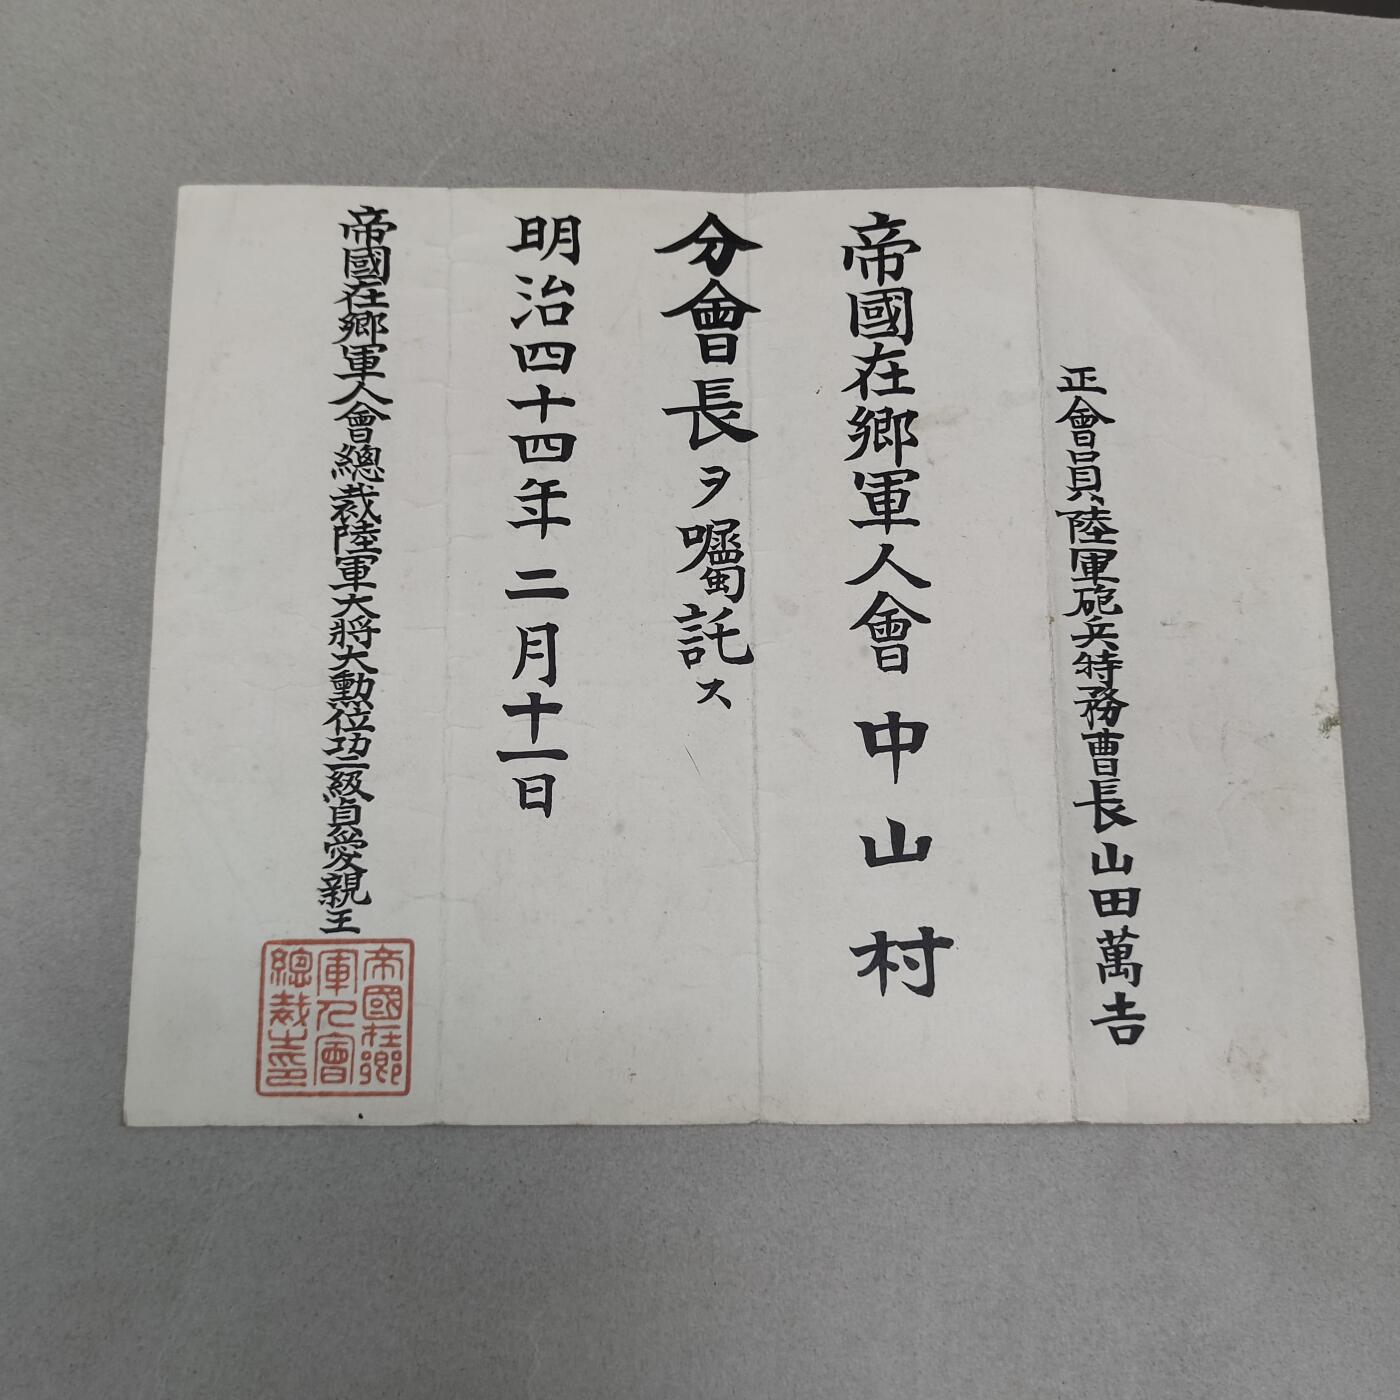 正會員、陸軍砲兵特務曹長山田萬吉
帝國在鄉軍人會中山村
分會長ヲ囑託ス
明治四十四年二月十一日
帝國在鄉軍人會總裁陸軍大將大勳位功二級貞愛親王
帝國在鄉
軍人會
總裁之印